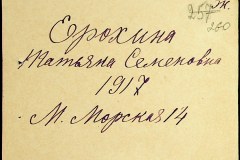 Ж.
257
280
Ерохина
Татьяна Семеновна
1917
М. Морская 14